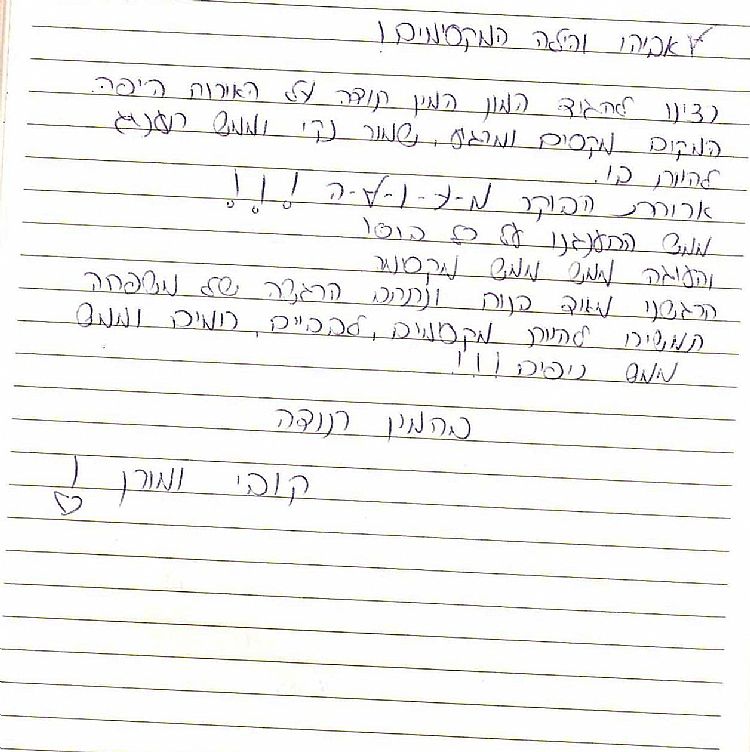 לאביהו והילה המקסימים!
רצינו להגיד המון המון תודה על האירוח היפה
המקום מקסים ומרגיע, שמור נקי וממש תענוג
להיות בו.
ארוחת הבוקר מ-ע-ו-ל-ה !!!
ממש התענגנו על כל ביס!
והעוגה ממש ממש מקסימה
הרגשנו מאוד בנוח ונתתם הרגשה של משפחה
תמשיכו להיות מקסימים, לבביים, חמים וממש
ממש כיפים!!!
מהמון תודה
קובי ומורן !